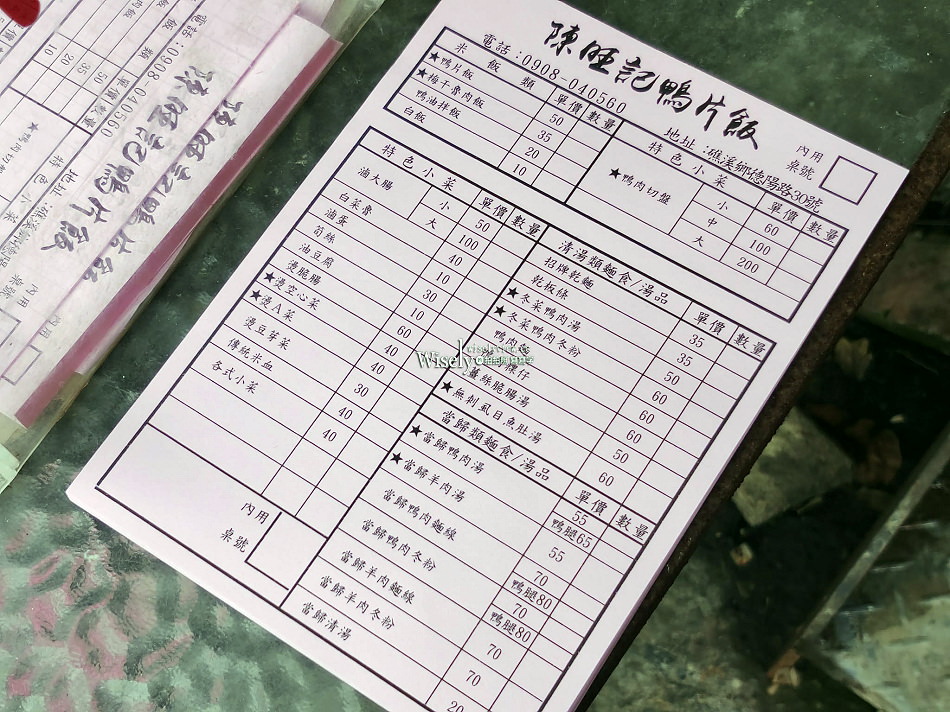 陳旺記鴨片飯
電話:0908-040560
地址:礁溪鄉德陽路30號
內用
桌號
米飯類 單價 數量
★鴨片飯 50
★梅干魯肉飯 35
鴨油拌飯 20
白飯 10
特色小菜 單價 數量
★鴨肉切盤 小 60
中 100
大 200
特色小菜 單價 數量
滷大腸 小 50
大 100
白菜魯 40
滷蛋 10
筍絲 30
油豆腐 10
燙脆腸 60
★燙空心菜 40
★燙A菜 40
燙豆芽菜 30
傳統米血 40
各式小菜 40
內用
桌號
清湯類麵食/湯品 單價 數量
招牌乾麵 35
乾板條 35
★冬菜鴨肉湯 50
★冬菜鴨肉冬粉 60
鴨肉麵 60
粿仔 60
薑絲脆腸湯 50
★無刺虱目魚肚湯 60
當歸類麵食/湯品 單價 數量
★當歸鴨肉湯 55
鴨腿65
★當歸羊肉湯 55
當歸鴨肉麵線 70
鴨腿80
當歸鴨肉冬粉 70
鴨腿80
當歸羊肉麵線 70
當歸羊肉冬粉 70
當歸清湯 20
Wisely